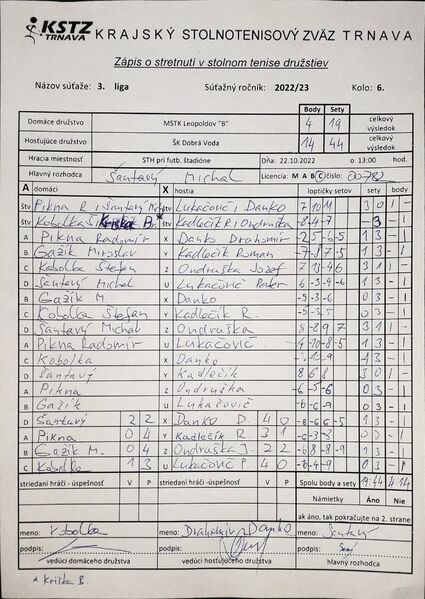 KSTZ TRNAVA KRAJSKÝ STOLNOTENISOVÝ ZVÄZ TRNAVA
Zápis o stretnutí v stolnom tenise družstiev
Názov súťaže: 3. liga Súťažný ročník: 2022/23 Kolo: 6.
Body Sety
Domáce družstvo MSTK Leopoldov "B" 4 19 celkový výsledok
Hosťujúce družstvo ŠK Dobrá Voda 14 44 celkový výsledok
Hracia miestnosť STH pri futb. štadióne Dňa: 22.10.2022 o 13:00 hod.
Hlavný rozhodca Šantavý Michal Licencia: M A B C číslo: 00782
A domáci X hostia loptičky setov sety body
štv Pikna R i Šantavý Mich štv Lukačovič i Danko 7 10 11 3 0 1 -
štv Kobolka Š Kriška B* štv Kadlečík i Ondruška -8 -4 -7 - 3 - 1
A Pikna Radomír X Danko Drahomír -2 5 -6 -5 1 3 - 1
B Gažík Miroslav Y Kadlečík Roman -7 -8 7 -5 1 3 - 1
C Kobolka Štefan Z Ondruška Jozef 3 1 1 -
D Šantavý Michal U Lukačovič Peter 6 -3 -9 -6 1 3 - 1
B Gažík M X Danko -5 -3 -6 0 3 - 1
C Kobolka Štefan Y Kadlečík R. -5 -3 -5 0 3 - 1
D Šantavý Michal Z Ondruška 8 -8 9 7 3 1 1 -
A Pikna Radomír U Lukačovič -4 10 -8 -5 1 3 - 1
C Kobolka X Danko 1 3 - 1
D Šantavý Y Kadlečík 8 6 8 3 0 1 -
A Pikna Z Ondruška -6 -5 -6 0 3 - 1
B Gažík U Lukačovič -6 -6 -9 0 3 - 1
D Šantavý 2 2 X Danko D. 4 0 -8 -6 6 -5 1 3 - 1
A Pikna 0 4 Y Kadlečík R. 3 1 -6 -3 -8 0 3 - 1
B Gažík M. 0 4 Z Ondruška J. 2 2 -6 8 -8 -9 1 3 - 1
C Kobolka 1 3 U Lukačovič P 4 0 0 3 - 1
striedaní hráči - úspešnosť V P striedaní hráči - úspešnosť V P Spolu body a sety 19 44 4 14
Námietky Áno Nie
ak áno, tak pokračujte na 2. strane
meno: Kobolka meno: Drahomír Danko meno: Šantavý
podpis: podpis: podpis:
vedúci domáceho družstva vedúci hosťujúceho družstva hlavný rozhodca
* Kriška B.